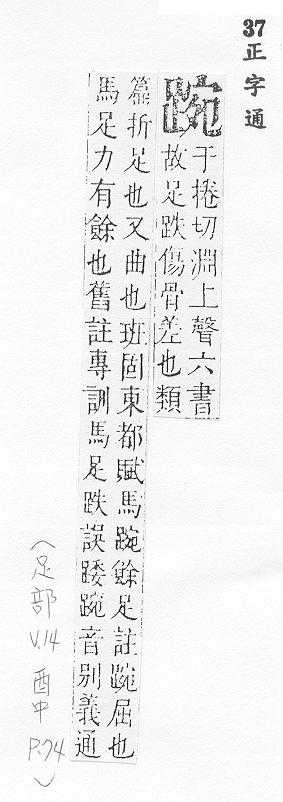 37正字通
踠
于捲切淵上聲六書
故足跌傷骨差也類
篇折足也又曲也班固東都賦馬踠餘足註踠屈也
馬足力有餘也舊註專訓馬足跌誤踒踠音別義通
(足部
V.14 酉中
P.74)